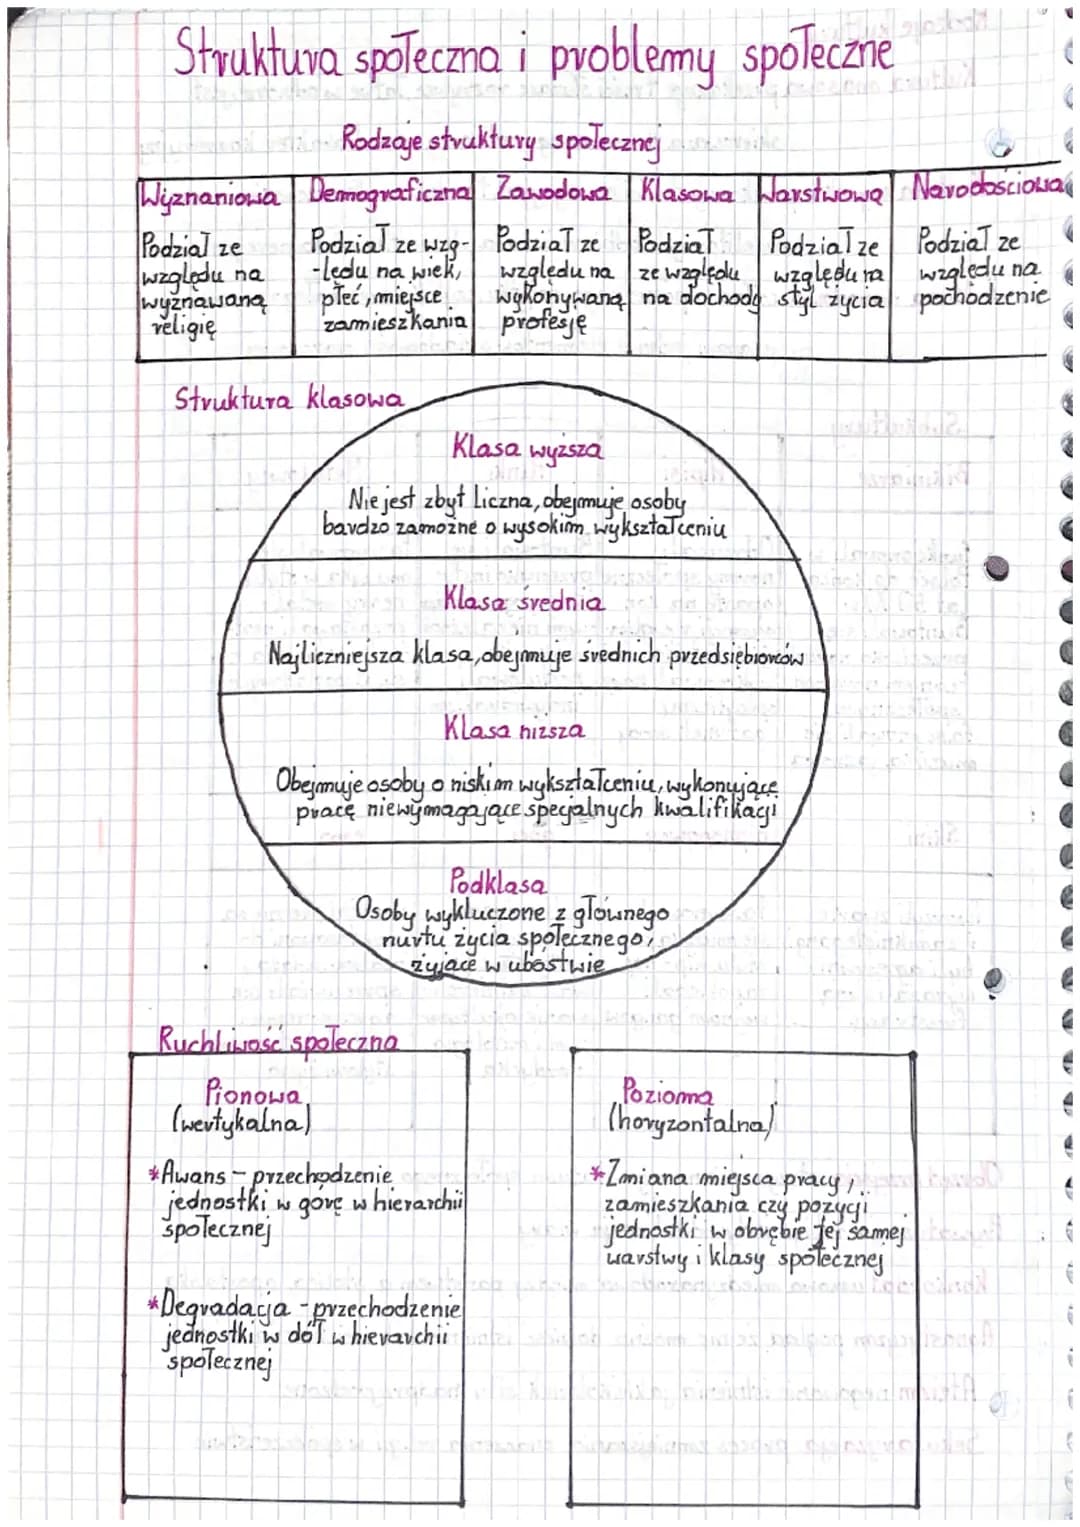 Struktura społeczna i problemy społeczne
Rodzaje struktury społecznej
Wyznaniowa Demograficzna Zawodowa Klasowa Warstwowa Narodościowa
Podział ze
względu na
wyznawaną
religię
Podział ze wzg-
-lędu na wiek,
płeć, miejsce
zamieszkania
Podział ze
względu na
wykonywaną
profesję
Podział
ze względu
na dochody
Podział ze
względu na
styl życia
Podział ze
względu na
pochodzenie
Struktura klasowa
Klasa wyższa
Nie jest zbyt liczna, obejmuje osoby
bardzo zamożne o wysokim wykształceniu
Klasa średnia
Najliczniejsza klasa, obejmuje średnich przedsiębiorców
Klasa niższa
Obejmuje osoby o niskim wykształceniu, wykonujące
pracę niewymagające specjalnych kwalifikacji
Podklasa
Osoby wykluczone z głównego
nurtu życia społecznego,
żyjące w ubóstwie
Ruchliwość społeczna
Pionowa
(wertykalna)
*Awans - przechodzenie
jednostki w górę w hierarchii
społecznej
*Degradacja - przechodzenie
jednostki w dół w hierarchii
społecznej
Pozioma
(horyzontalna)
*Zmiana miejsca pracy,
zamieszkania czy pozycji
jednostki w obrębie tej samej
warstwy i klasy społecznej